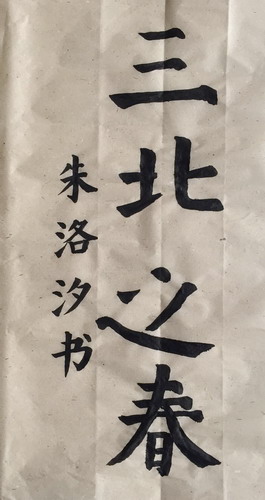 三北之春
朱洛汐书